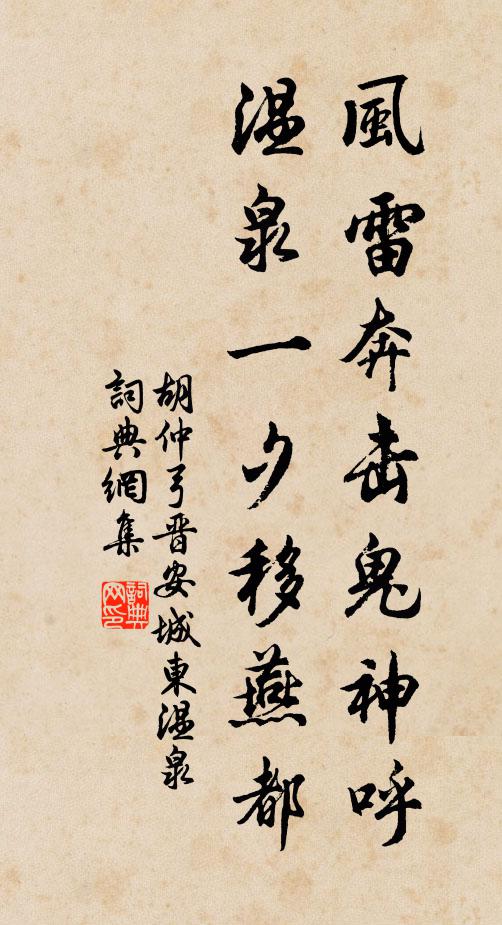 風雷奔击鬼神呼
温泉一夕移燕都
胡仲弓晋安城東温泉
詞典網集
詞典网印